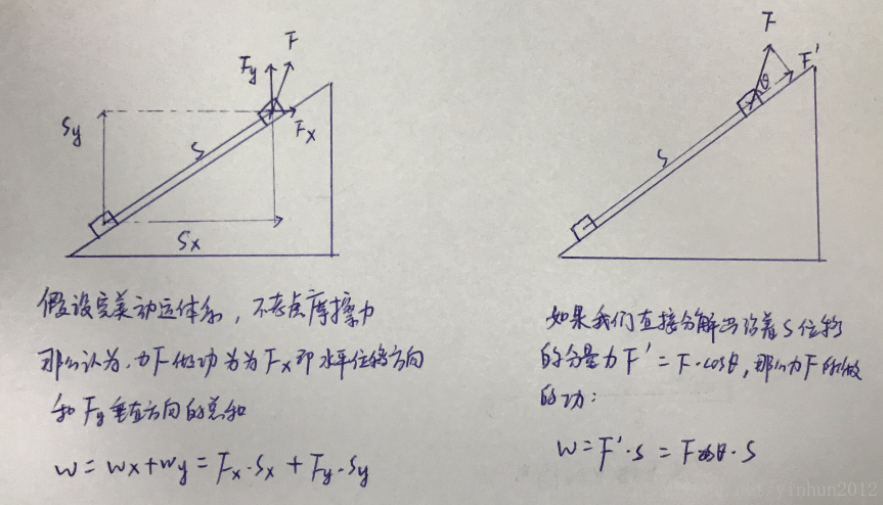 F
Fy
Fx
Sy
S
Sx
假设完美动运体系,不考虑摩擦力
那么认为,力F做功为为Fx即水平位移方向
和Fy垂直方向的总和
W = Wx + Wy = Fx·Sx + Fy·Sy
F
F'
θ
S
如果我们直接分解出沿着S位移
的分量力F' = F·cosθ,那么力F所做
的功:
W = F'·S = Fcosθ·S
yinhun2012